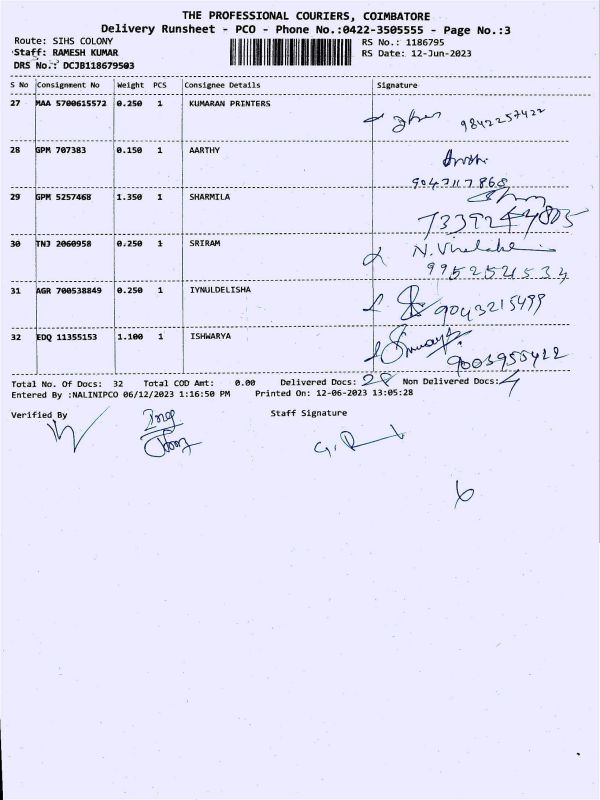 THE PROFESSIONAL COURIERS, COIMBATORE
Delivery Runsheet - PCO - Phone No.:0422-3505555 - Page No.:3
Route: SIHS COLONY RS No.: 1186795
Staff: RAMESH KUMAR RS Date: 12-Jun-2023
DRS No.: DCJB118679503
S No Consignment No Weight PCS Consignee Details Signature
27 MAA 5700615572 0.250 1 KUMARAN PRINTERS 9842257422
28 GPM 707383 0.150 1 AARTHY
9047117868
29 GPM 5257468 1.350 1 SHARMILA
7339244805
30 TNJ 2060958 0.250 1 SRIRAM
9952521534
31 AGR 700538849 0.250 1 IYNULDELISHA 9043215499
32 EDQ 11355153 1.100 1 ISHWARYA
9003955422
Total No. Of Docs: 32 Total COD Amt: 0.00 Delivered Docs: 28 Non Delivered Docs: 4
Entered By :NALINIPCO 06/12/2023 1:16:50 PM Printed On: 12-06-2023 13:05:28
Verified By Staff Signature